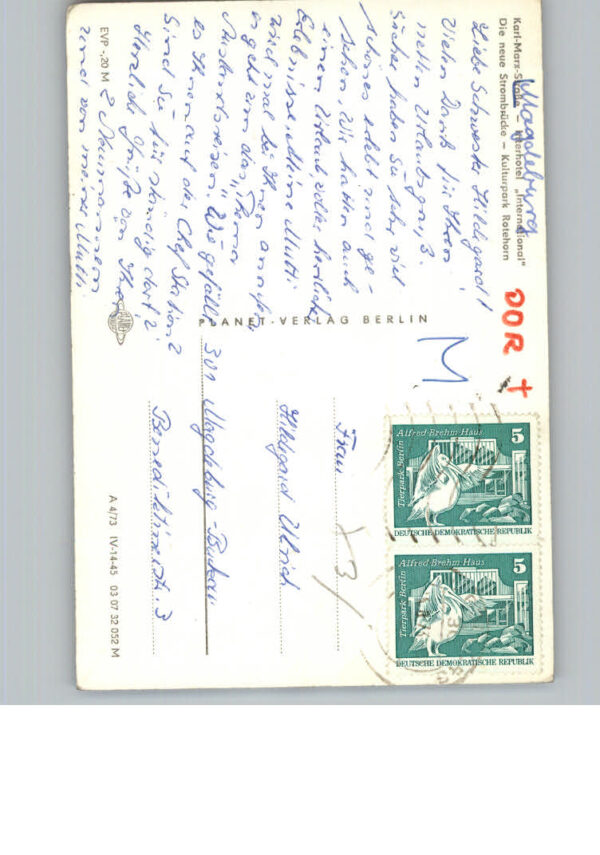 Magdeburg
Karl-Marx-Straße – Interhotel „International"
Die neue Strombrücke – Kulturpark Rotehorn
Liebe Schwester Hildegard!
Vielen Dank für Ihren
netten Urlaubsgruß.
Sicher haben Sie sehr viel
schönes erlebt und ge-
sehen. Wir hatten auch
einen Urlaub voller herrlicher
Erlebnisse. Meine Mutti
wird mal bei Ihnen anrufen
es geht um das
Auslandsreisen. Wie gefällt
es Ihnen auf der Chef Station?
Sind Sie für ständig dort?
Herzliche Grüße von Ihrer
und von meiner Mutti
EVP -,20 M
PLANET-VERLAG BERLIN
PLANET
DDR +
M
Frau
Hildegard Ullrich
301 Magdeburg-Buckau
3
A 4/73 IV-14-45 03 07 32 052 M
Alfred-Brehm-Haus
Tierpark Berlin
5
DEUTSCHE DEMOKRATISCHE REPUBLIK
Alfred-Brehm-Haus
Tierpark Berlin
5
DEUTSCHE DEMOKRATISCHE REPUBLIK